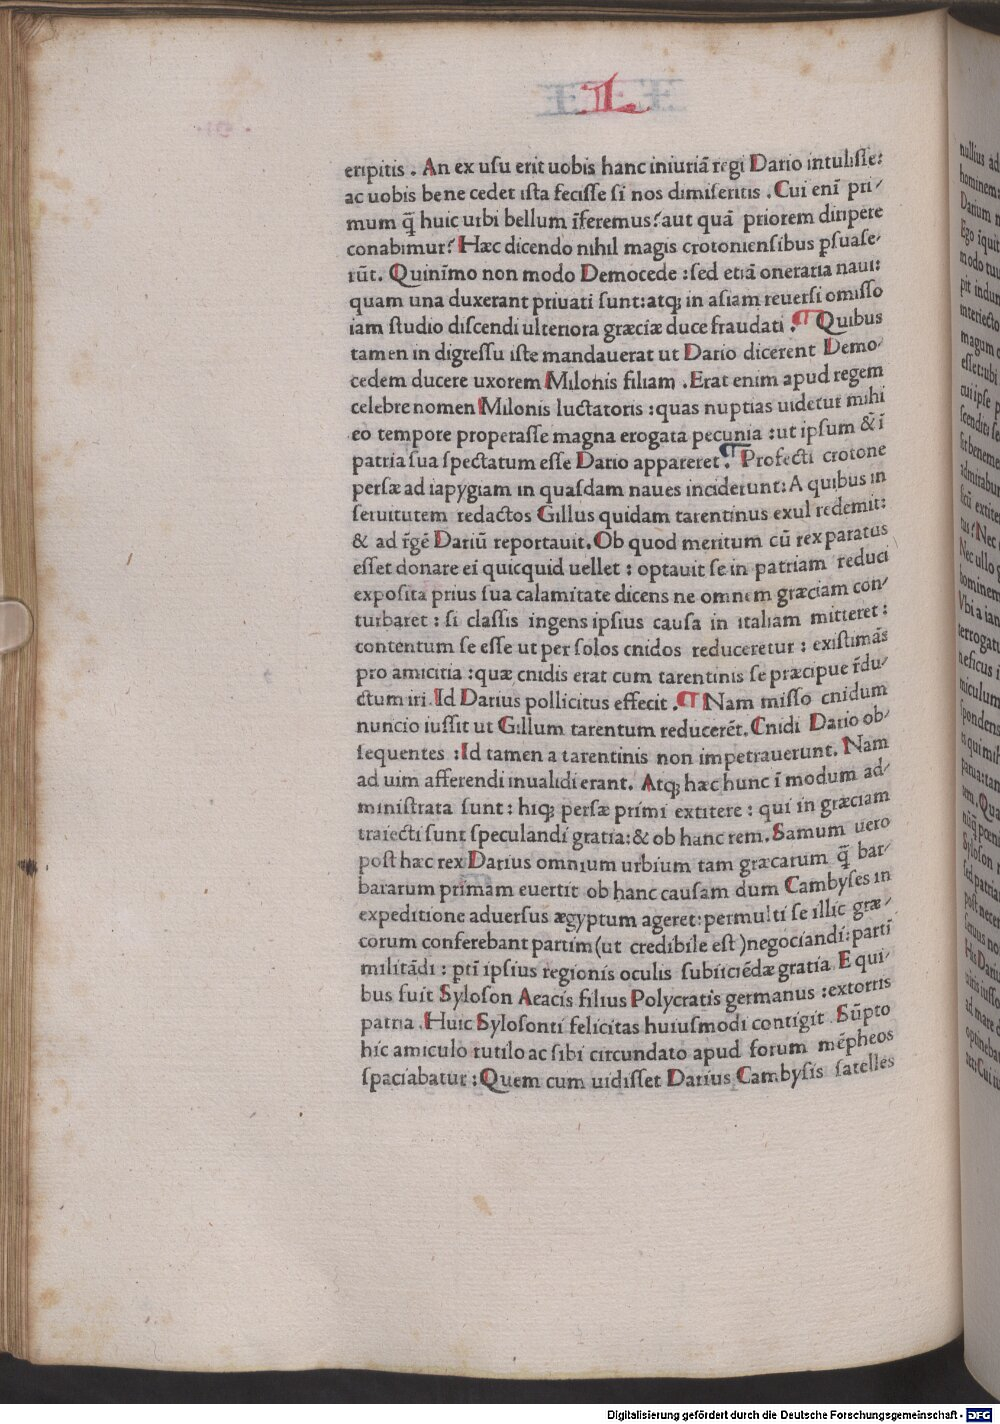 L
eripitis . An ex uſu erit uobis hanc iniuriā regi Dario intuliſſe:
ac uobis bene cedet iſta feciſſe ſi nos dimiſeritis . Cui enī pri⸗
mum q̄ huic urbi bellum īferemus? aut quā priorem diripere
conabimur? Hæc dicendo nihil magis crotonienſibus pſuaſe⸗
rūt. Quinīmo non modo Democede : ſed etiā oneraria naui:
quam una duxerant priuati ſunt: atq; in aſiam reuerſi omiſſo
iam ſtudio diſcendi ulteriora græciæ duce fraudati . ¶ Quibus
tamen in digreſſu iſte mandauerat ut Dario dicerent Demo⸗
cedem ducere uxorem Milonis filiam . Erat enim apud regem
celebre nomen Milonis luctatoris : quas nuptias uidetur mihi
eo tempore properaſſe magna erogata pecunia : ut ipſum & ī
patria ſua ſpectatum eſſe Dario appareret. ¶ Profecti crotone
perſæ ad iapygiam in quaſdam naues inciderunt: A quibus in
ſeruitutem redactos Gillus quidam tarentinus exul redemit:
& ad r̄gē Dariū reportauit. Ob quod meritum cū rex paratus
eſſet donare ei quicquid uellet : optauit ſe in patriam reduci
expoſita prius ſua calamitate dicens ne omnem græciam con⸗
turbaret : ſi claſſis ingens ipſius cauſa in italiam mitteret :
contentum ſe eſſe ut per ſolos cnidos reduceretur : exiſtimās
pro amicitia : quæ cnidis erat cum tarentinis ſe præcipue r̄du⸗
ctum iri. Id Darius pollicitus effecit . ¶ Nam miſſo cnidum
nuncio iuſſit ut Gillum tarentum reducerēt. Cnidi Dario ob⸗
ſequentes : Id tamen a tarentinis non impetrauerunt. Nam
ad uim afferendi inualidi erant. Atq; hæc hunc ī modum ad⸗
miniſtrata ſunt : hiq; perſæ primi extitere : qui in græciam
traiecti ſunt ſpeculandi gratia: & ob hanc rem. Samum uero
poſt hæc rex Darius omnium urbium tam græcarum q̄ bar⸗
bararum primam euertit ob hanc cauſam dum Cambyſes in
expeditione aduerſus ægyptum ageret: permulti ſe illic græ⸗
corum conferebant partim (ut credibile eſt ) negociandi: partī
militādi : ptī ipſius regionis oculis ſubiiciēdæ gratia. E qui⸗
bus fuit Syloſon Aeacis filius Polycratis germanus : extorris
patria . Huic Syloſonti felicitas huiuſmodi contigit . Sūpto
hic amiculo rutilo ac ſibi circundato apud forum mēpheos
ſpaciabatur : Quem cum uidiſſet Darius Cambyſis ſatelles
Digitalisierung gefördert durch die Deutsche Forschungsgemeinschaft - DFG